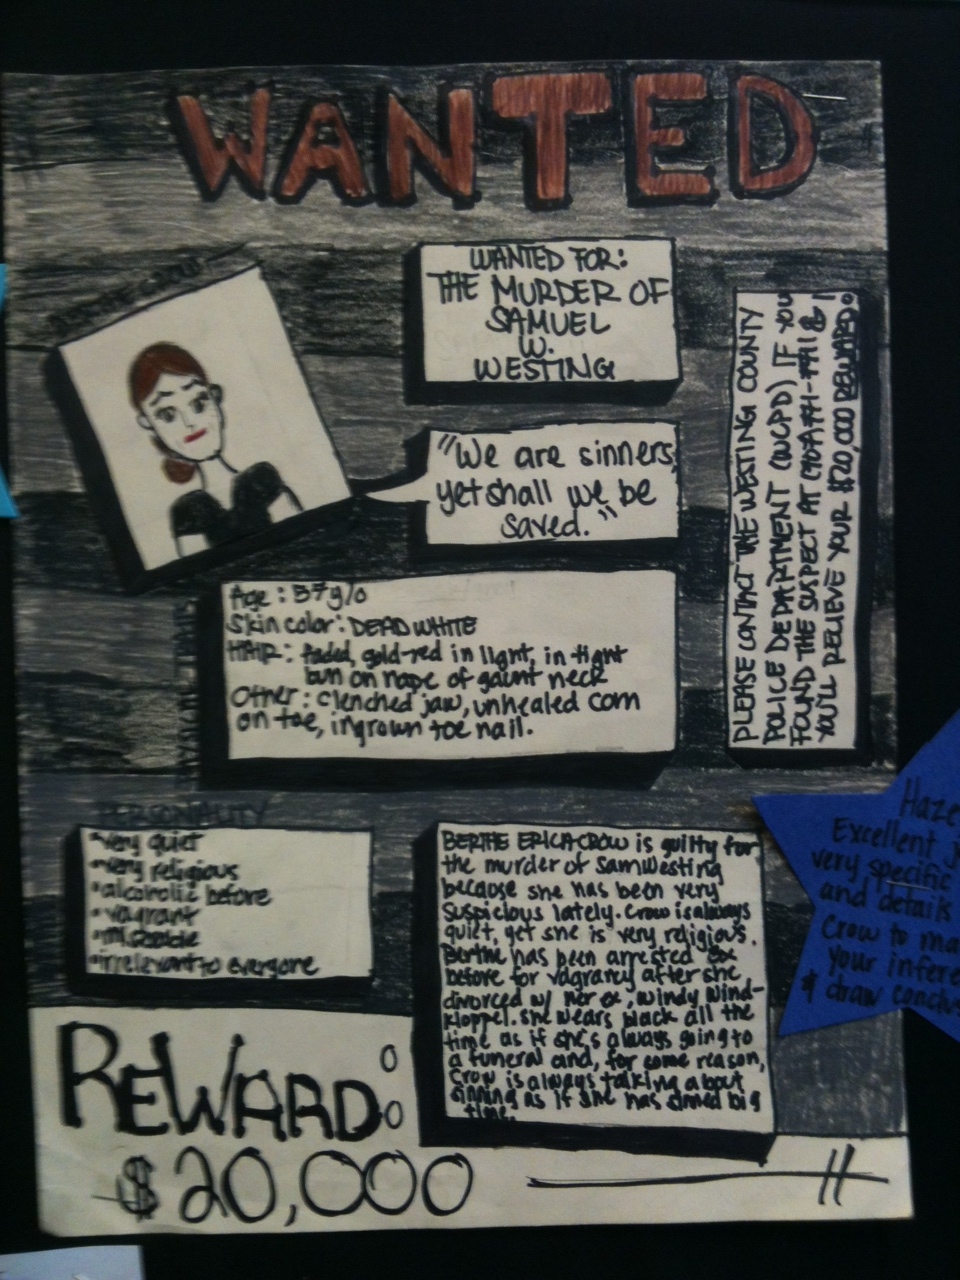 WANTED
WANTED FOR:
THE MURDER OF
SAMUEL
W.
WESTING
"We are sinners,
yet shall we be
saved."
PLEASE CONTACT THE WESTING COUNTY
POLICE DEPARTMENT (WCPD) IF YOU
FOUND THE SUSPECT AT &
YOU'LL RECIEVE YOUR $20,000 REWARD!
Age: 57 y/o
Skin color: DEAD WHITE
HAIR: faded, gold-red in light, in tight
bun on nape of gaunt neck
Other: Clenched jaw, unhealed corn
on toe, ingrown toe nail.
PERSONALITY
•very quiet
•very religious
•alcoholic before
•vagrant
•miserable
•irrelevant to everyone
BERTHE ERICA CROW is guilty for
the murder of Sam Westing
because she has been very
suspicious lately. Crow is always
quiet, yet she is very religious.
Berthe has been arrested
before for vagrancy after she
divorced w/ her ex, Windy Wind-
kloppel. She wears black all the
time as if she's always going to
a funeral and, for some reason,
Crow is always talking about
sinning as if she has sinned big
time.
REWARD:
$20,000
Excellent
very specific
and details
Crow to
your
& draw